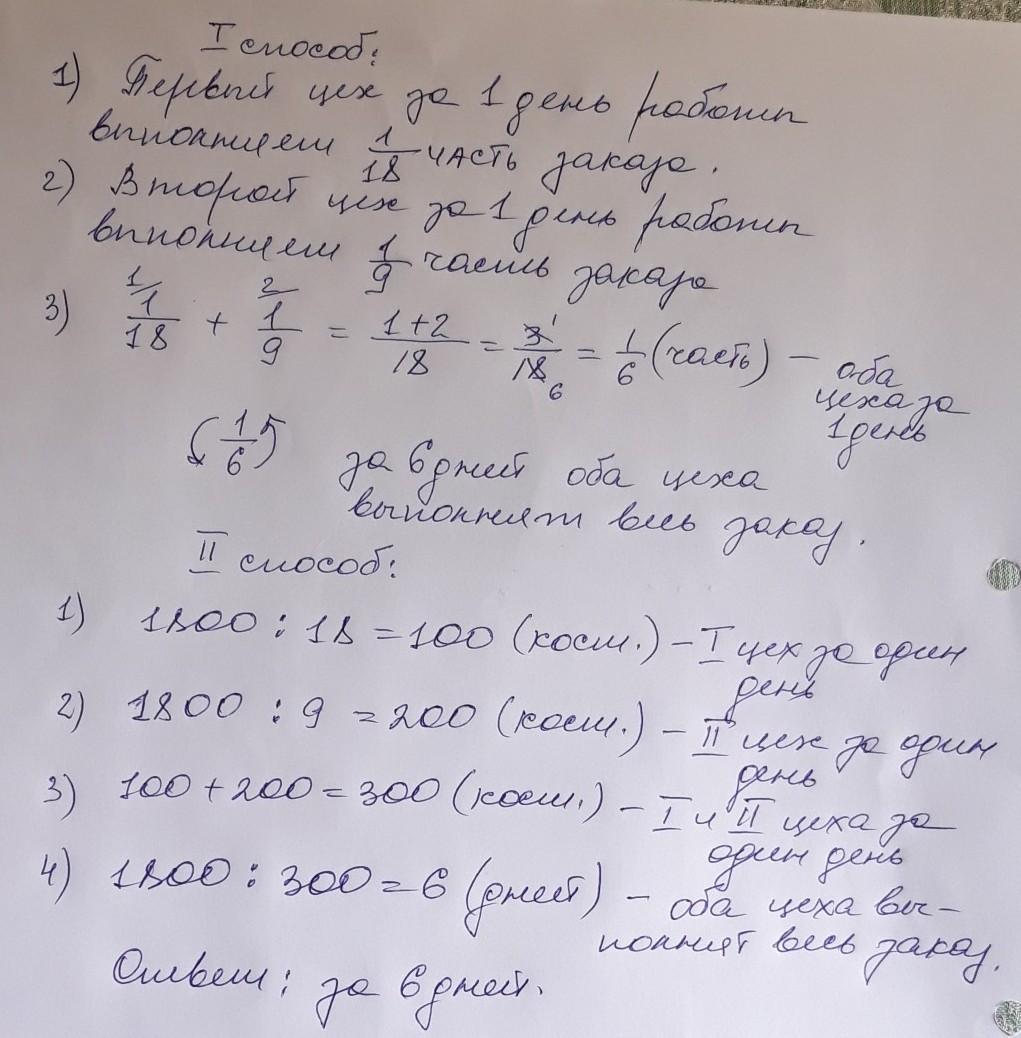 I способ:
1) Первый цех за 1 день работы
выполняет 1/18 часть заказа.
2) Второй цех за 1 день работы
выполняет 1/9 часть заказа
3) 1/18 + 1/9 = 1+2/18 = 3/18 = 1/6 (часть) – оба
цеха за
1 день
(1/6) за 6 дней оба цеха
выполнят весь заказ.
II способ:
1) 1800 : 18 = 100 (кост.) – I цех за один
день
2) 1800 : 9 = 200 (кост.) – II цех за один
день
3) 100 + 200 = 300 (кост.) – I и II цеха за
один день
4) 1800 : 300 = 6 (дней) – оба цеха вы-
полнят весь заказ.
Ответ: за 6 дней.